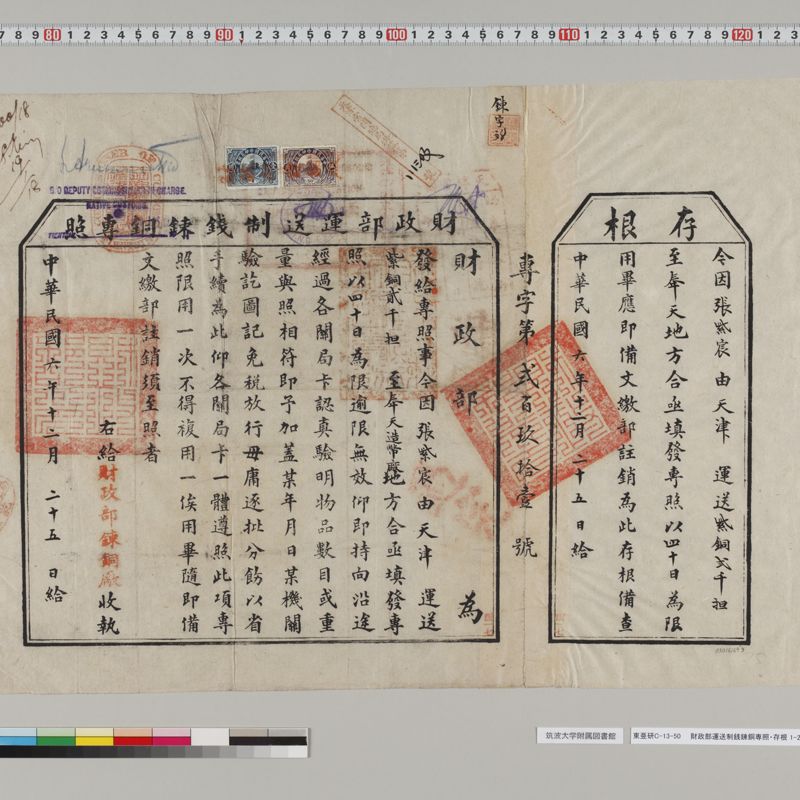 存根
今因張紫宸由天津 運送紫銅弍千担
至奉天地方合亟填發專照以四十日為限
用畢應即備文繳部註銷為此存根備查
中華民國 六年十二月 二十五日給
專字第 弍百玖拾壹 號
財政部運送制錢銅專照
財政部 為
發給專照事今因張紫宸由天津 運送
紫銅貳千担 至奉天造幣廠地方合亟填發專
照以四十日為限逾限無效仰即持向沿途
經過各關局卡認真驗明物品數目或重
量與照相符即予加蓋某年月日某機關
驗訖圖記免稅放行毋庸逐批分飭以省
手續為此仰各關局卡一體遵照此項專
照限用一次不得複用一俟用畢隨即備
文繳部註銷須至照者
右給財政部銅廠收執
中華民國 六年十二月 二十五 日給
DEPUTY COMMISSIONER IN CHARGE.
NATIVE CUSTOMS.
7 8 9 80 1 2 3 4 5 6 7 8 9 90 1 2 3 4 5 6 7 8 9 100 1 2 3 4 5 6 7 8 9 110 1 2 3 4 5 6 7 8 9 120 1 2 3
筑波大学附属図書館
東亜研C-13-50 財政部運送制銭錬銅専照・存根 1-2